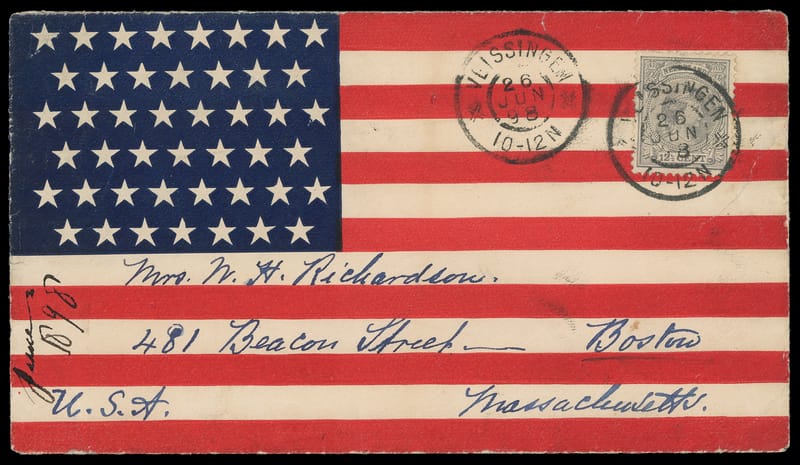 VLISSINGEN
26
JUN
98
10-12N
VLISSINGEN
26
JUN
8
10-12N
12½ CENT
Mrs. W. H. Richardson.
481 Beacon Street — Boston
U.S.A. Massachusetts.
June
1898